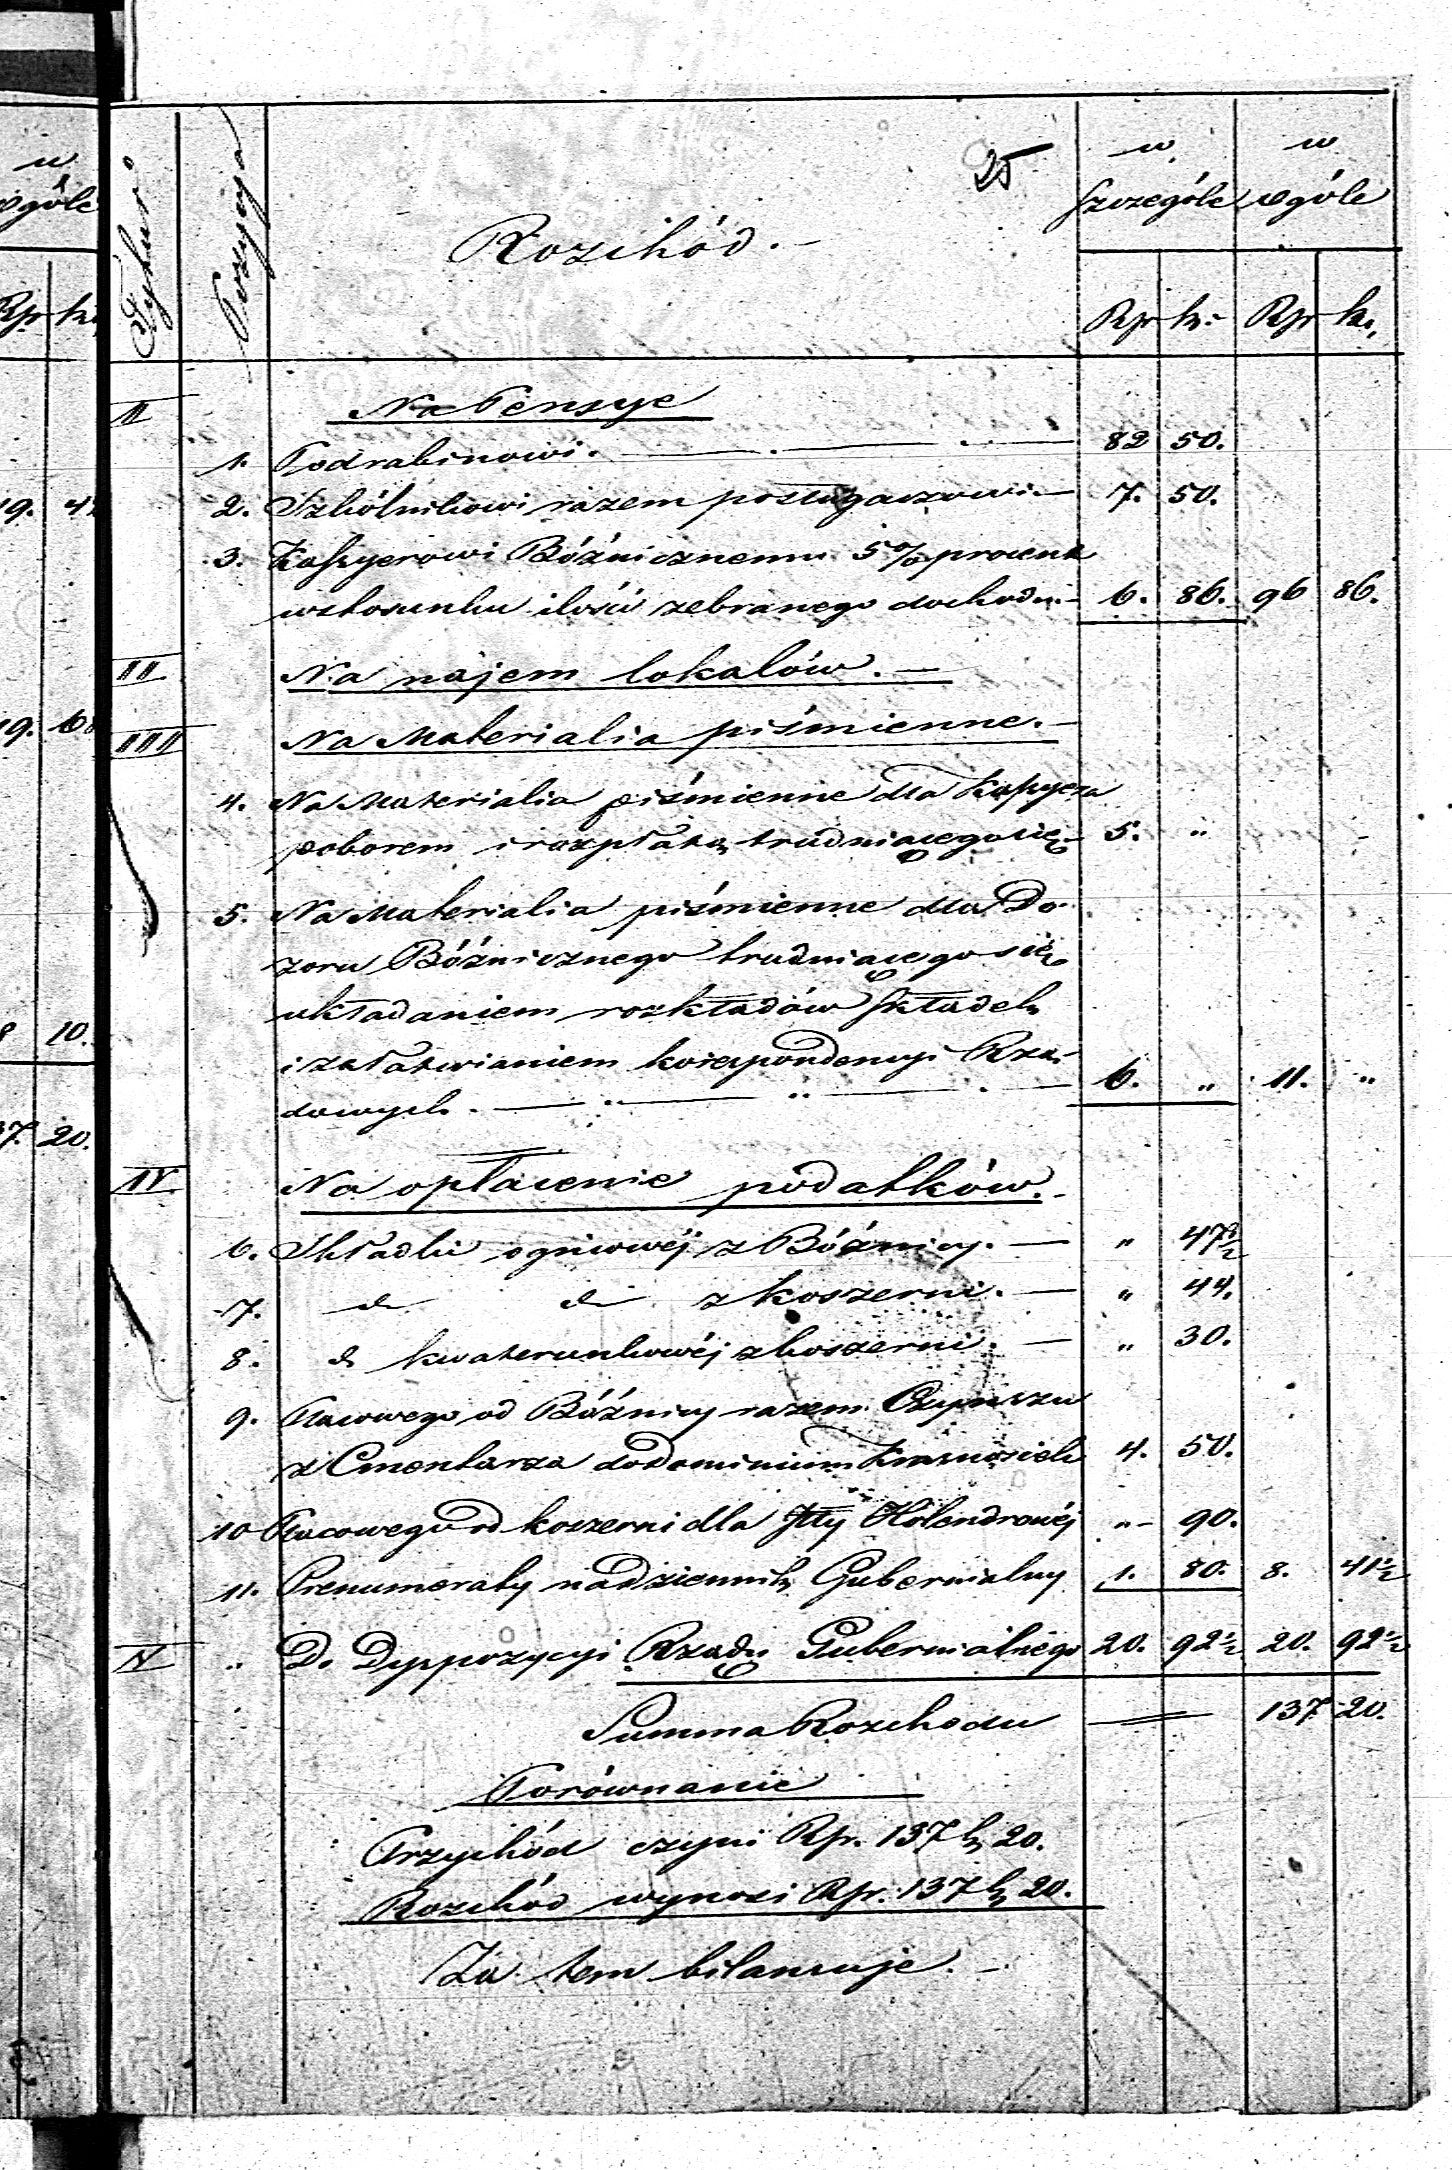 w
ogóle
Rp k.
19. 4
19. 68
8 10.
37. 20.
25
Tytuł
Pozycya
Rozchód.
w szczególe
w ogóle
Rp k. Rp k.
II Na Pensye
1. Podrabinowi. 82 50.
2. Szkólnikowi razem posługaczowi 7. 50.
3. Kassyerowi Bóżnicznemu 5% procent
wstosunku ilości zebranego dochodu 6. 86. 96 86.
II Na najem lokalów.
III Na Materialia piśmienne.
4. Na Materialia piśmienne dla Kassyera
poborem i rozpłatą trudniącego się 5. "
5. Na Materialia piśmienne dla Do-
zoru Bóżnicznego trudniącego się
układaniem rozkładów składek
i załatwianiem korespondencyi Rzą-
dowych. 6. " 11. "
IV Na opłacenie podatków.
6. Składki ogniowéj z Bóżnicy. " 47½
7. d d z koszerni. " 44.
8. d kwaterunkowéj z koszerni. " 30.
9. Placowego od Bóżnicy razem Czynszu
z Cmentarza do dominium Krasnosielc 4. 50.
10 Placowego od koszerni dla Itty Holendrowéj " 90.
11. Prenumeraty na dziennik Gubernialny 1. 80. 8. 41½
V " Do Dyspozycyi Rządu Gubernialnego 20. 92½ 20. 92½
Summa Rozchodu 137 20.
Porównanie
Przychód czyni Rp. 137 k. 20.
Rozchód wynosi Rp. 137 k. 20.
Za tem bilansuje.